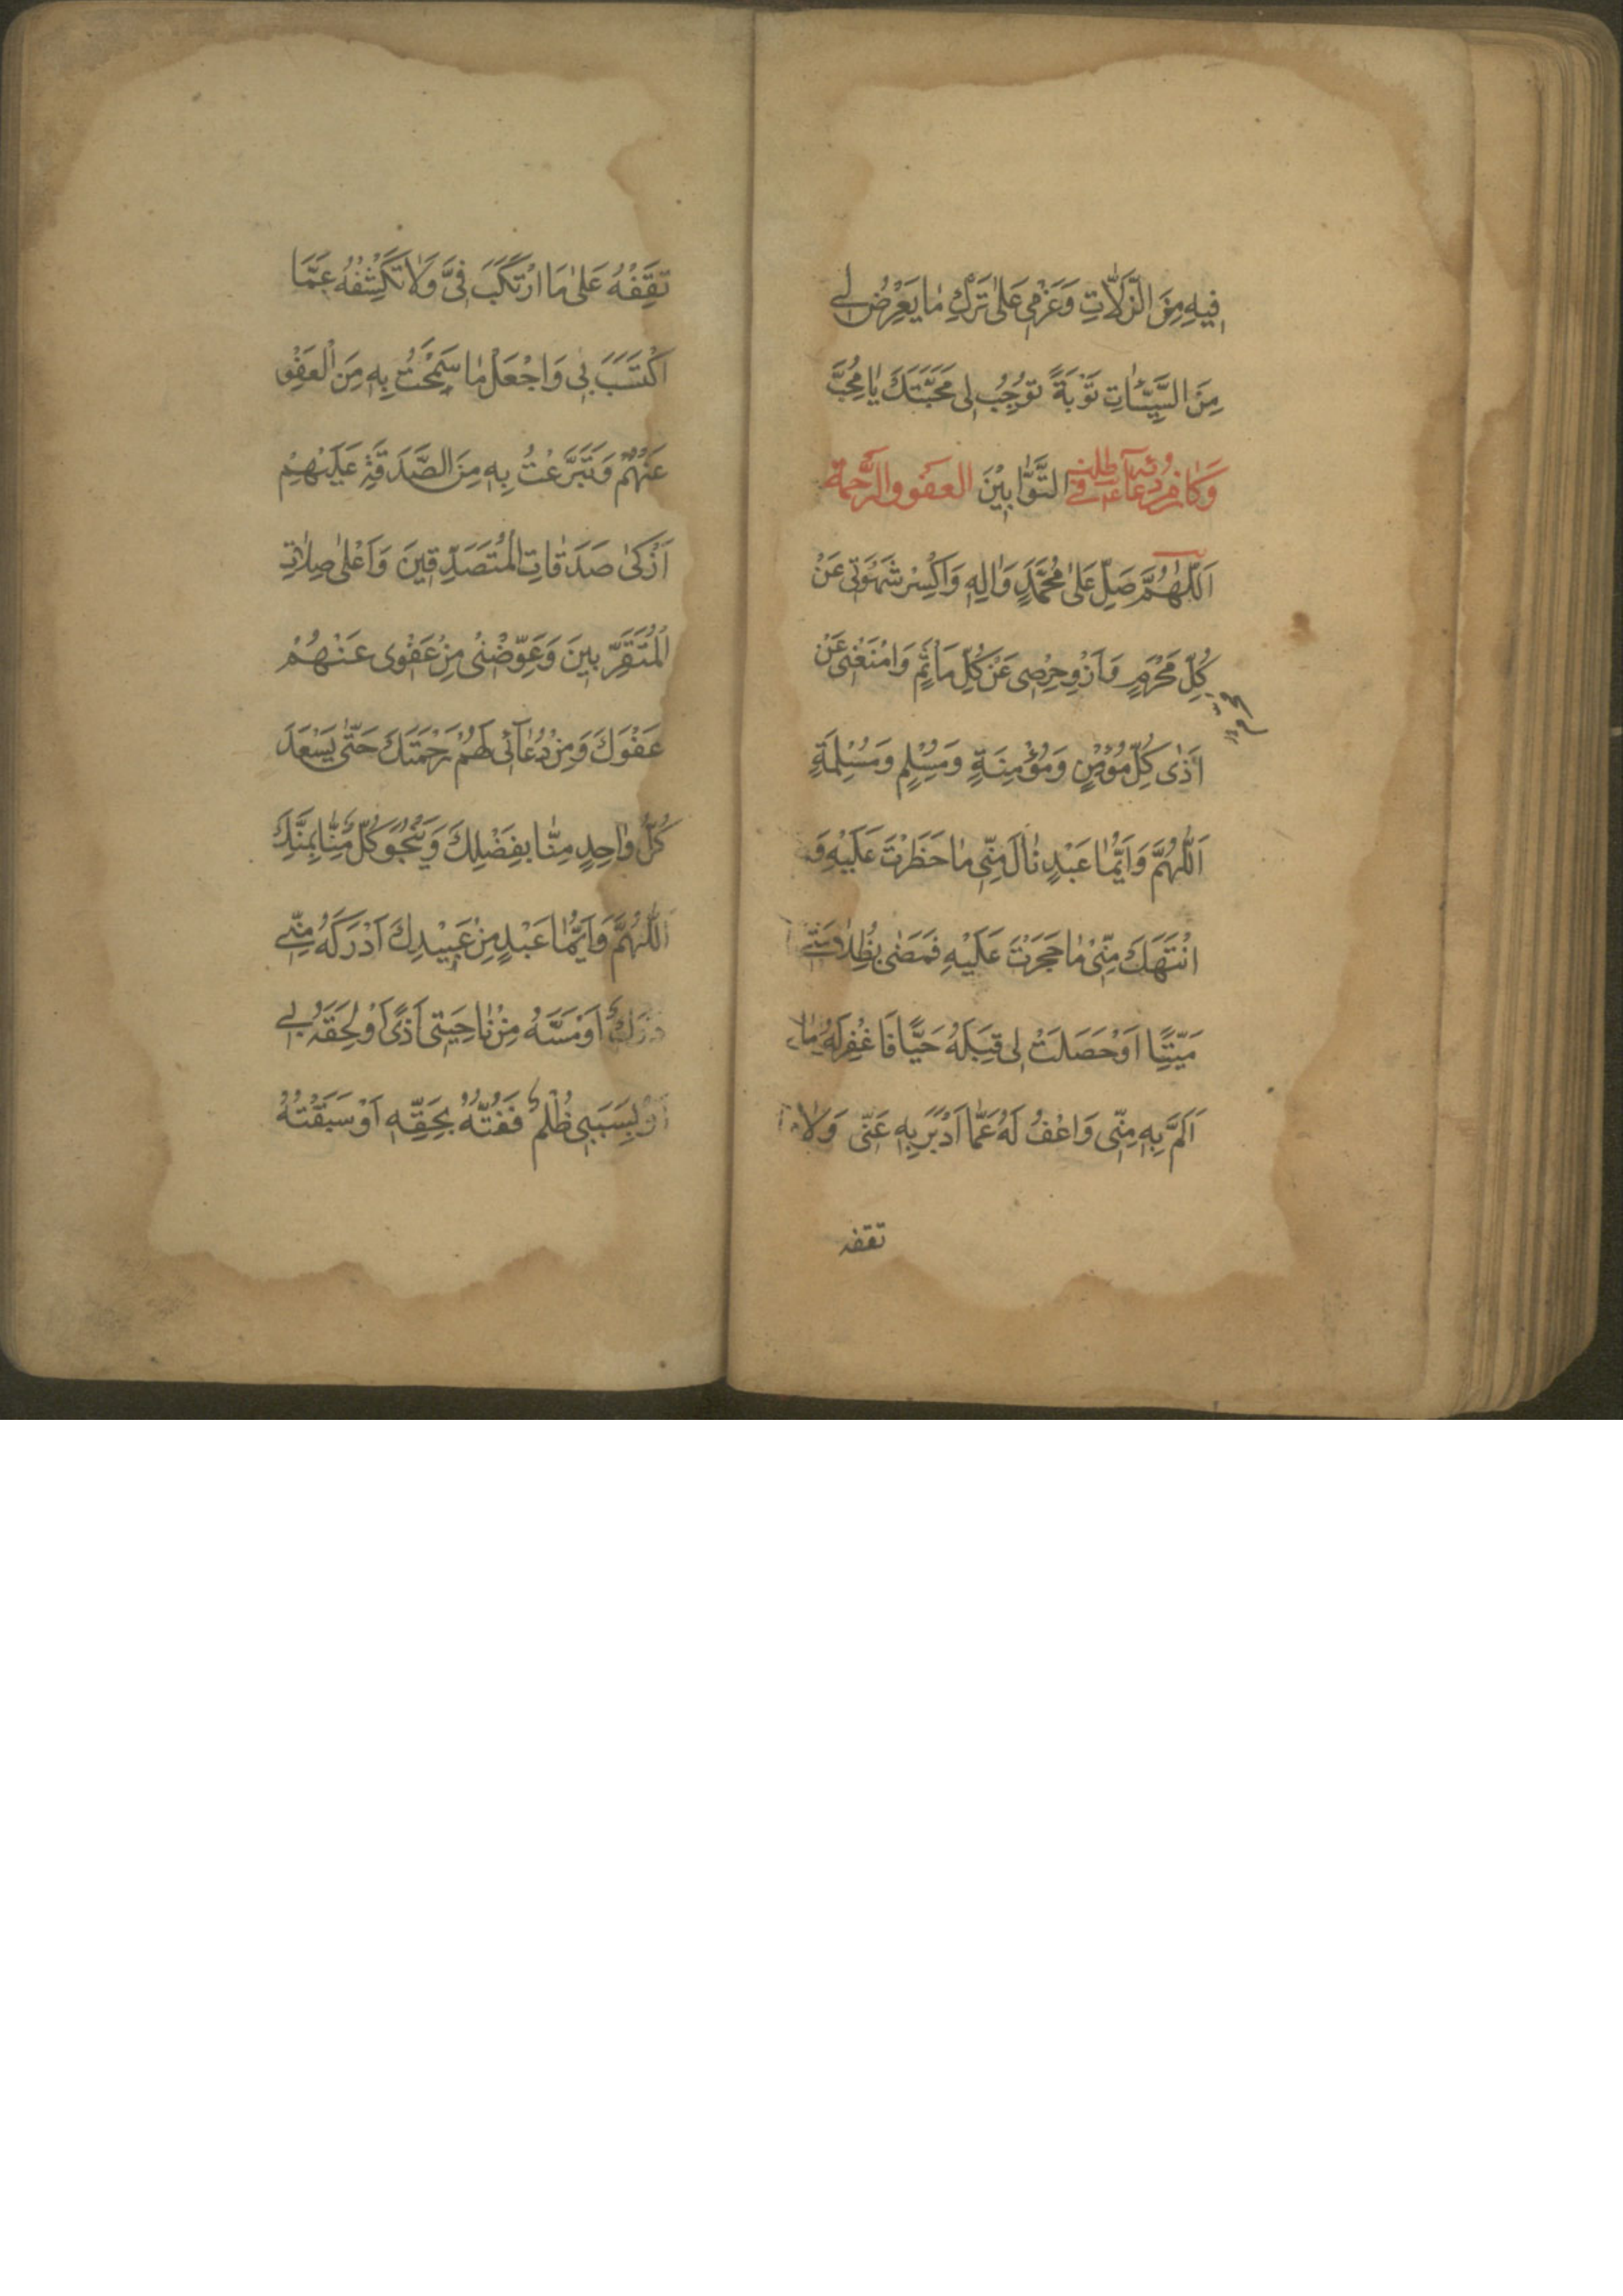 فِيهِ مِنَ الزَّلَّاتِ وَعَزْمِي عَلىٰ تَرْكِ مٰا يَعْرِضُ لِي
مِنَ السَّيِّئٰاتِ تَوْبَةً تُوجِبُ لِي مَحَبَّتَكَ يٰا مُحِبَّ
التَّوّٰابِينَ وَكَانَ مِنْ دُعَائِهِ ع فِي طَلَبِ العَفْوِ وَالرَّحْمَةِ
اَللّٰهُمَّ صَلِّ عَلىٰ مُحَمَّدٍ وَاٰلِهِ وَاكْسِرْ شَهْوَتِي عَنْ
كُلِّ مَحْرَمٍ وَازْوِ حِرْصِي عَنْ كُلِّ مَأْثَمٍ وَامْنَعْنِي عَنْ
اَذٰى كُلِّ مُؤْمِنٍ وَمُؤْمِنَةٍ وَمُسْلِمٍ وَمُسْلِمَةٍ
اَللّٰهُمَّ وَاَيُّمٰا عَبْدٍ نٰالَ مِنِّي مٰا حَظَرْتَ عَلَيْهِ وَ
انْتَهَكَ مِنِّي مٰا حَجَرْتَ عَلَيْهِ فَمَضٰى بِظُلٰامَتِي
مَيِّتًا اَوْ حَصَلَتْ لِي قِبَلَهُ حَيًّا فَاغْفِرْ لَهُ مٰا
اَلَمَّ بِهِ مِنِّي وَاعْفُ لَهُ عَمّٰا اَدْبَرَ بِهِ عَنِّي وَلٰا
تقفه
تَقِفْهُ عَلىٰ مَا ارْتَكَبَ فِيَّ وَلٰا تَكْشِفْهُ عَمَّا
اكْتَسَبَ بِي وَاجْعَلْ مٰا سَمَحْتُ بِهِ مِنَ الْعَفْوِ
عَنْهُمْ وَتَبَرَّعْتُ بِهِ مِنَ الصَّدَقَةِ عَلَيْهِمْ
اَزْكىٰ صَدَقٰاتِ الْمُتَصَدِّقِينَ وَاَعْلىٰ صِلٰاتِ
الْمُتَقَرِّبِينَ وَعَوِّضْنِي مِنْ عَفْوِي عَنْهُمْ
عَفْوَكَ وَمِنْ دُعٰآئِي لَهُمْ رَحْمَتَكَ حَتّٰى يَسْعَدَ
كُلُّ وٰاحِدٍ مِنّٰا بِفَضْلِكَ وَيَنْجُوَ كُلٌّ مِنّٰا بِمَنِّكَ
اَللّٰهُمَّ وَاَيُّمٰا عَبْدٍ مِنْ عَبِيْدِكَ اَدْرَكَهُ مِنِّي
دَرَكٌ اَوْ مَسَّهُ مِنْ نٰاحِيَتِي اَذًى اَوْ لَحِقَهُ بِي
اَوْ بِسَبَبِي ظُلْمٌ فَفُتُّهُ بِحَقِّهِ اَوْ سَبَقْتُهُ